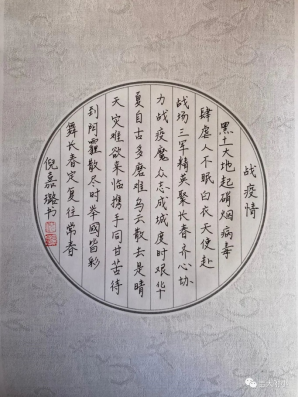 战疫情
黑土大地起硝烟病毒
肆虐人不眠白衣天使赴
战场三军精英聚长春齐心协
力战疫魔众志成城度时艰华
夏自古多磨难乌云散去是晴
天灾难欲来临携手同甘苦待
到阴霾散尽时举國皆彩
舞长春定复往常春
倪嘉璐书